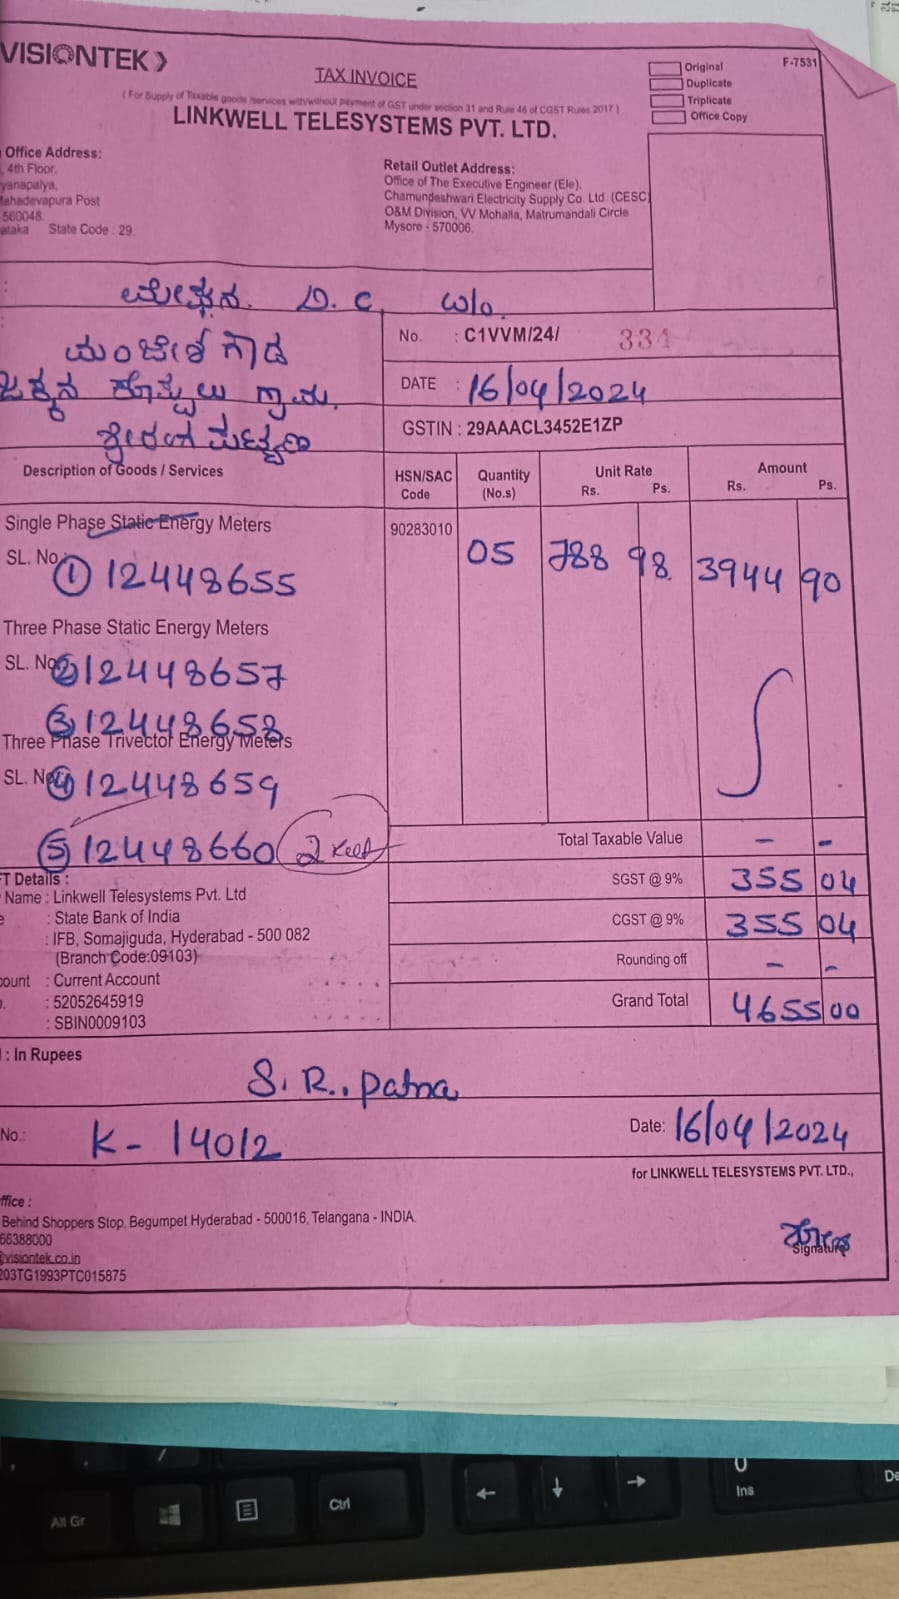 VISIONTEK
TAX INVOICE
Original
F-7531
Duplicate
Triplicate
Office Copy
( For Supply of Taxable goods /services with/without payment of GST under section 31 and Rule 46 of CGST Rules 2017 )
LINKWELL TELESYSTEMS PVT. LTD.
Office Address:
, 4th Floor,
yanapalya,
ahadevapura Post
560048.
ataka State Code : 29.
Retail Outlet Address:
Office of The Executive Engineer (Ele),
Chamundeshwari Electricity Supply Co. Ltd. (CESC)
O&M Division, VV Mohalla, Matrumandali Circle
Mysore - 570006.
D. C. W/o.
ಗೌಡ
ಗ್ರಾಮ.
No. : C1VVM/24/ 334
DATE : 16/04/2024
GSTIN : 29AAACL3452E1ZP
Description of Goods / Services HSN/SAC Code Quantity (No.s) Unit Rate Rs. Ps. Amount Rs. Ps.
Single Phase Static Energy Meters 90283010 05 788 98. 3944 90
SL. No. ① 12448655
Three Phase Static Energy Meters
SL. No ② 12448657
③ 12448658
Three Phase Trivector Energy Meters
SL. No ④ 12448659
⑤ 12448660
Total Taxable Value - -
SGST @ 9% 355 04
CGST @ 9% 355 04
Rounding off - -
Grand Total 4655 00
T Details :
Name : Linkwell Telesystems Pvt. Ltd
e : State Bank of India
: IFB, Somajiguda, Hyderabad - 500 082
(Branch Code:09103)
count : Current Account
: 52052645919
: SBIN0009103
: In Rupees
S. R.. patna
No.: K - 14012
Date: 16/04/2024
for LINKWELL TELESYSTEMS PVT. LTD.,
ffice :
Behind Shoppers Stop, Begumpet Hyderabad - 500016, Telangana - INDIA.
66388000
@visiontek.co.in
203TG1993PTC015875
Signature
Alt Gr
Ctrl
0
Ins
De